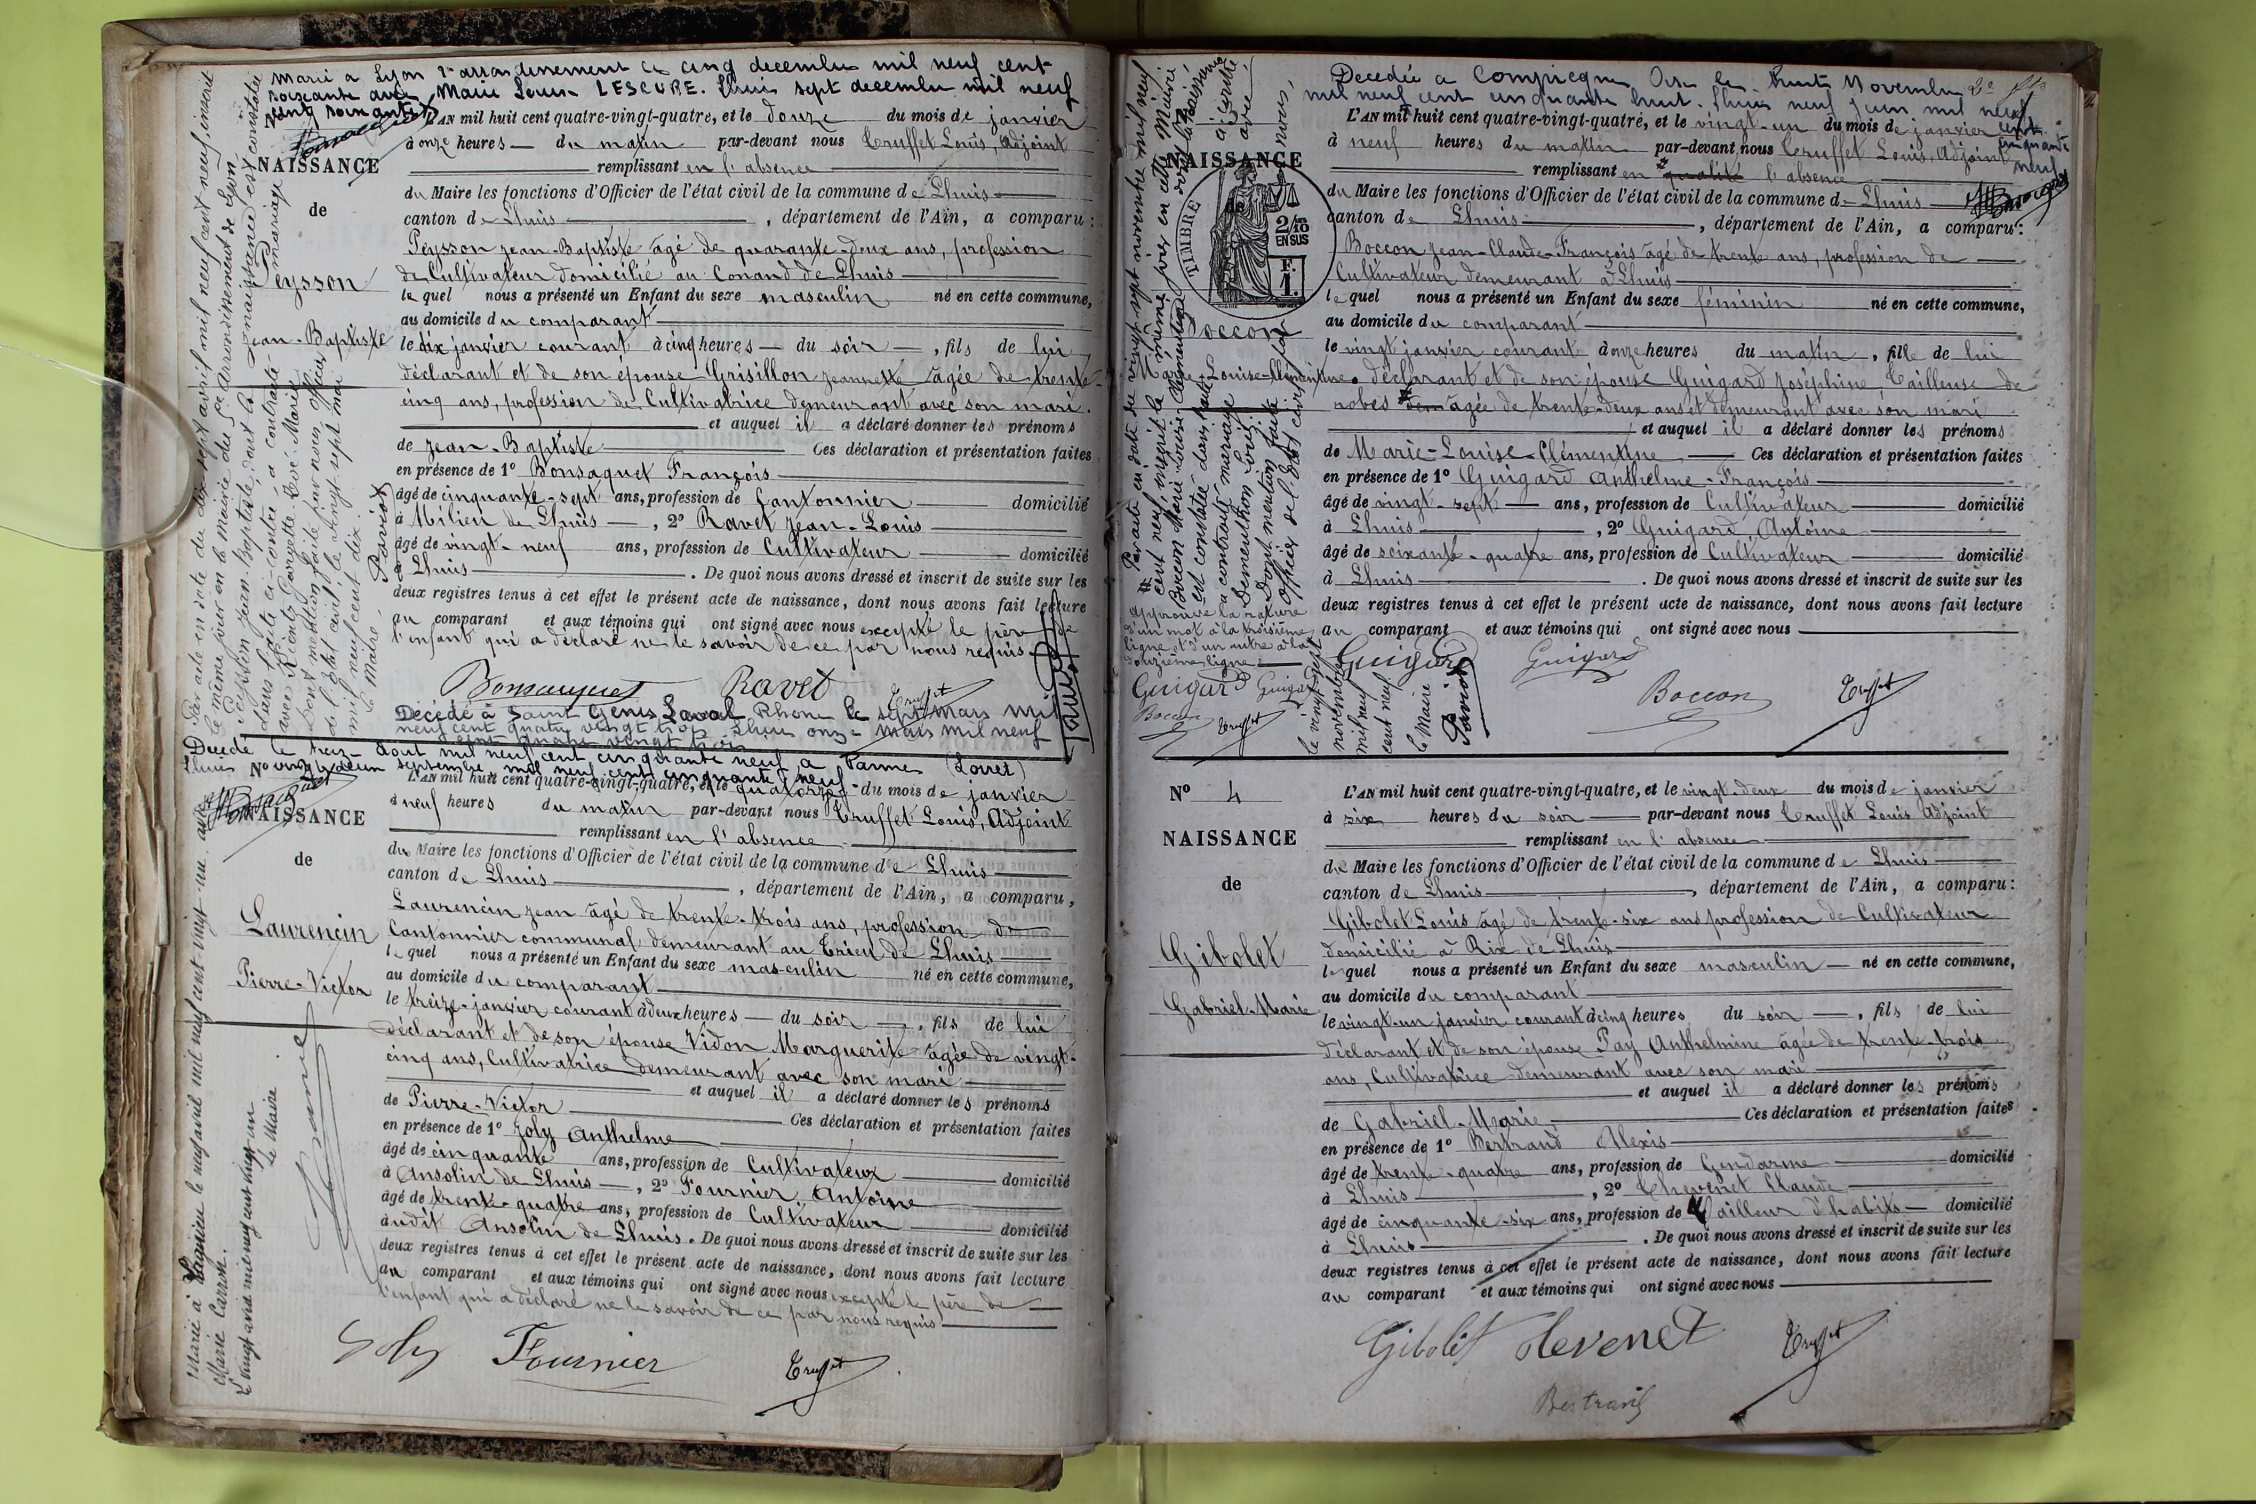 Marié à Lyon 2e arrondissement le cinq decembre mil neuf cent
soixante avec Marie Louise LESCURE. Lhuis sept decembre mil neuf
cent soixante
L'AN mil huit cent quatre-vingt-quatre, et le douze du mois de janvier
à onze heures du matin par-devant nous Truffet Louis, Adjoint
NAISSANCE
remplissant en l'absence
du Maire les fonctions d'Officier de l'état civil de la commune de Lhuis
de
canton de Lhuis, département de l'Ain, a comparu :
Peysson Jean-Baptiste âgé de quarante-deux ans, profession
de Cultivateur domicilié au Conand de Lhuis
Peysson
lequel nous a présenté un Enfant du sexe masculin né en cette commune,
au domicile du comparant
Jean-Baptiste
le dix janvier courant à cinq heures du soir, fils de lui
déclarant et de son épouse Grisillon Jeannette âgée de trente-
cinq ans, profession de Cultivatrice demeurant avec son mari.
et auquel il a déclaré donner les prénoms
de Jean-Baptiste Ces déclaration et présentation faites
en présence de 1° Bonsaquet François
âgé de cinquante-sept ans, profession de Cantonnier domicilié
à Milieu de Lhuis, 2° Ravet Jean-Louis
âgé de vingt-neuf ans, profession de Cultivateur domicilié
à Lhuis. De quoi nous avons dressé et inscrit de suite sur les
deux registres tenus à cet effet le présent acte de naissance, dont nous avons fait lecture
au comparant et aux témoins qui ont signé avec nous excepté le père de
l'enfant qui a déclaré ne le savoir de ce par nous requis
Ravet Truffet
Par acte en date du dix sept avril mil neuf cent neuf, inscrit
le même jour en la mairie du 5e arrondissement de Lyon,
Peysson Jean-Baptiste, dont la naissance est constatée
dans l'acte ci-contre a contracté mariage
avec
Dont mention faite par nous, officier
de l'état civil le vingt-sept mai
mil neuf cent dix.
Le Maire
Pavior
Décédé à Saint Genis Laval Rhône le sept mars mil
neuf cent quatre vingt trois Lhuis onze mars mil neuf
cent quatre vingt trois
Décédé le treize août mil neuf cent cinquante neuf à (Loiret)
Lhuis vingt deux septembre mil neuf cent cinquante neuf
N°
L'AN mil huit cent quatre-vingt-quatre, et le quatorze du mois de janvier
à neuf heures du matin par-devant nous Truffet Louis, Adjoint
NAISSANCE
remplissant en l'absence
du Maire les fonctions d'Officier de l'état civil de la commune de Lhuis
de
canton de Lhuis, département de l'Ain, a comparu,
Laurencin Jean âgé de trente-trois ans, profession de
Laurencin
Cantonnier communal demeurant au Trieu de Lhuis
lequel nous a présenté un Enfant du sexe masculin né en cette commune,
Pierre-Victor
au domicile du comparant
le treize janvier courant à deux heures du soir, fils de lui
déclarant et de son épouse Vidon Marguerite âgée de vingt-
cinq ans, Cultivatrice demeurant avec son mari
et auquel il a déclaré donner les prénoms
de Pierre-Victor Ces déclaration et présentation faites
en présence de 1° Joly Anthelme
âgé de cinquante ans, profession de Cultivateur domicilié
à Ansolin de Lhuis, 2° Fournier, Antoine
âgé de trente-quatre ans, profession de Cultivateur domicilié
audit Ansolin de Lhuis. De quoi nous avons dressé et inscrit de suite sur les
deux registres tenus à cet effet le présent acte de naissance, dont nous avons fait lecture
au comparant et aux témoins qui ont signé avec nous excepté le père de
l'enfant qui a déclaré ne le savoir de ce par nous requis
Joly Fournier Truffet
Marié à Lagnieu le mil neuf cent vingt-un avec
Marie
Le Maire
Decedée a Compiegne Oise le huit Novembre 2e fte
mil neuf cent cinquante huit. Lhuis neuf juin mil neuf
cent cinquante neuf
L'AN mil huit cent quatre-vingt-quatre, et le vingt-un du mois de janvier
à neuf heures du matin par-devant nous Truffet Louis, Adjoint
NAISSANCE
remplissant en qualité l'absence
du Maire les fonctions d'Officier de l'état civil de la commune de Lhuis
de
canton de Lhuis, département de l'Ain, a comparu :
TIMBRE
2/10
EN SUS
F.
1.
Boccon Jean-Claude-François âgé de trente ans, profession de
Cultivateur demeurant à Lhuis
lequel nous a présenté un Enfant du sexe féminin né en cette commune,
Boccon
au domicile du comparant
le vingt janvier courant à onze heures du matin, fille de lui
Marie-Louise-Clémentine
déclarant et de son épouse Guigard Joséphine, Tailleuse de
robes âgée de trente-deux ans et demeurant avec son mari
et auquel il a déclaré donner les prénoms
de Marie-Louise-Clémentine Ces déclaration et présentation faites
en présence de 1° Guigard Anthelme-François
âgé de vingt-sept ans, profession de Cultivateur domicilié
à Lhuis, 2° Guigard, Antoine
âgé de soixante-quatre ans, profession de Cultivateur domicilié
à Lhuis. De quoi nous avons dressé et inscrit de suite sur les
deux registres tenus à cet effet le présent acte de naissance, dont nous avons fait lecture
au comparant et aux témoins qui ont signé avec nous
Guigard Guigard
Boccon Truffet
Par acte en date du vingt sept novembre mil neuf
cent neuf, inscrit le même jour en cette Mairie
Boccon Marie-Louise-Clémentine dont la naissance
est constatée dans l'acte ci-contre
a contracté mariage avec
Dont mention faite par nous,
officier de l'état civil
le vingt-sept
novembre
mil neuf
cent neuf
Le Maire
Pavior
Approuvé la rature
d'un mot à la troisième
ligne et d'un autre à la
douzième ligne
Guigard Guigard
Boccon Truffet
N° 4
L'AN mil huit cent quatre-vingt-quatre, et le vingt-deux du mois de janvier
à six heures du soir par-devant nous Truffet Louis Adjoint
NAISSANCE
remplissant en l'absence
du Maire les fonctions d'Officier de l'état civil de la commune de Lhuis
de
canton de Lhuis, département de l'Ain, a comparu :
Gibolet Louis âgé de trente-six ans profession de Cultivateur
Gibolet
domicilié à Rix de Lhuis
lequel nous a présenté un Enfant du sexe masculin né en cette commune,
au domicile du comparant
Gabriel-Marie
le vingt-un janvier courant à cinq heures du soir, fils de lui
déclarant et de son épouse Pay Anthelmine âgée de trente-trois
ans, Cultivatrice demeurant avec son mari
et auquel il a déclaré donner les prénoms
de Gabriel-Marie Ces déclaration et présentation faites
en présence de 1° Bertrand Alexis
âgé de trente-quatre ans, profession de Gendarme domicilié
à Lhuis, 2° Chevenet Claude
âgé de cinquante-six ans, profession de Tailleur d'habits domicilié
à Lhuis. De quoi nous avons dressé et inscrit de suite sur les
deux registres tenus à cet effet le présent acte de naissance, dont nous avons fait lecture
au comparant et aux témoins qui ont signé avec nous
Gibolet Chevenet Truffet
Bertrand